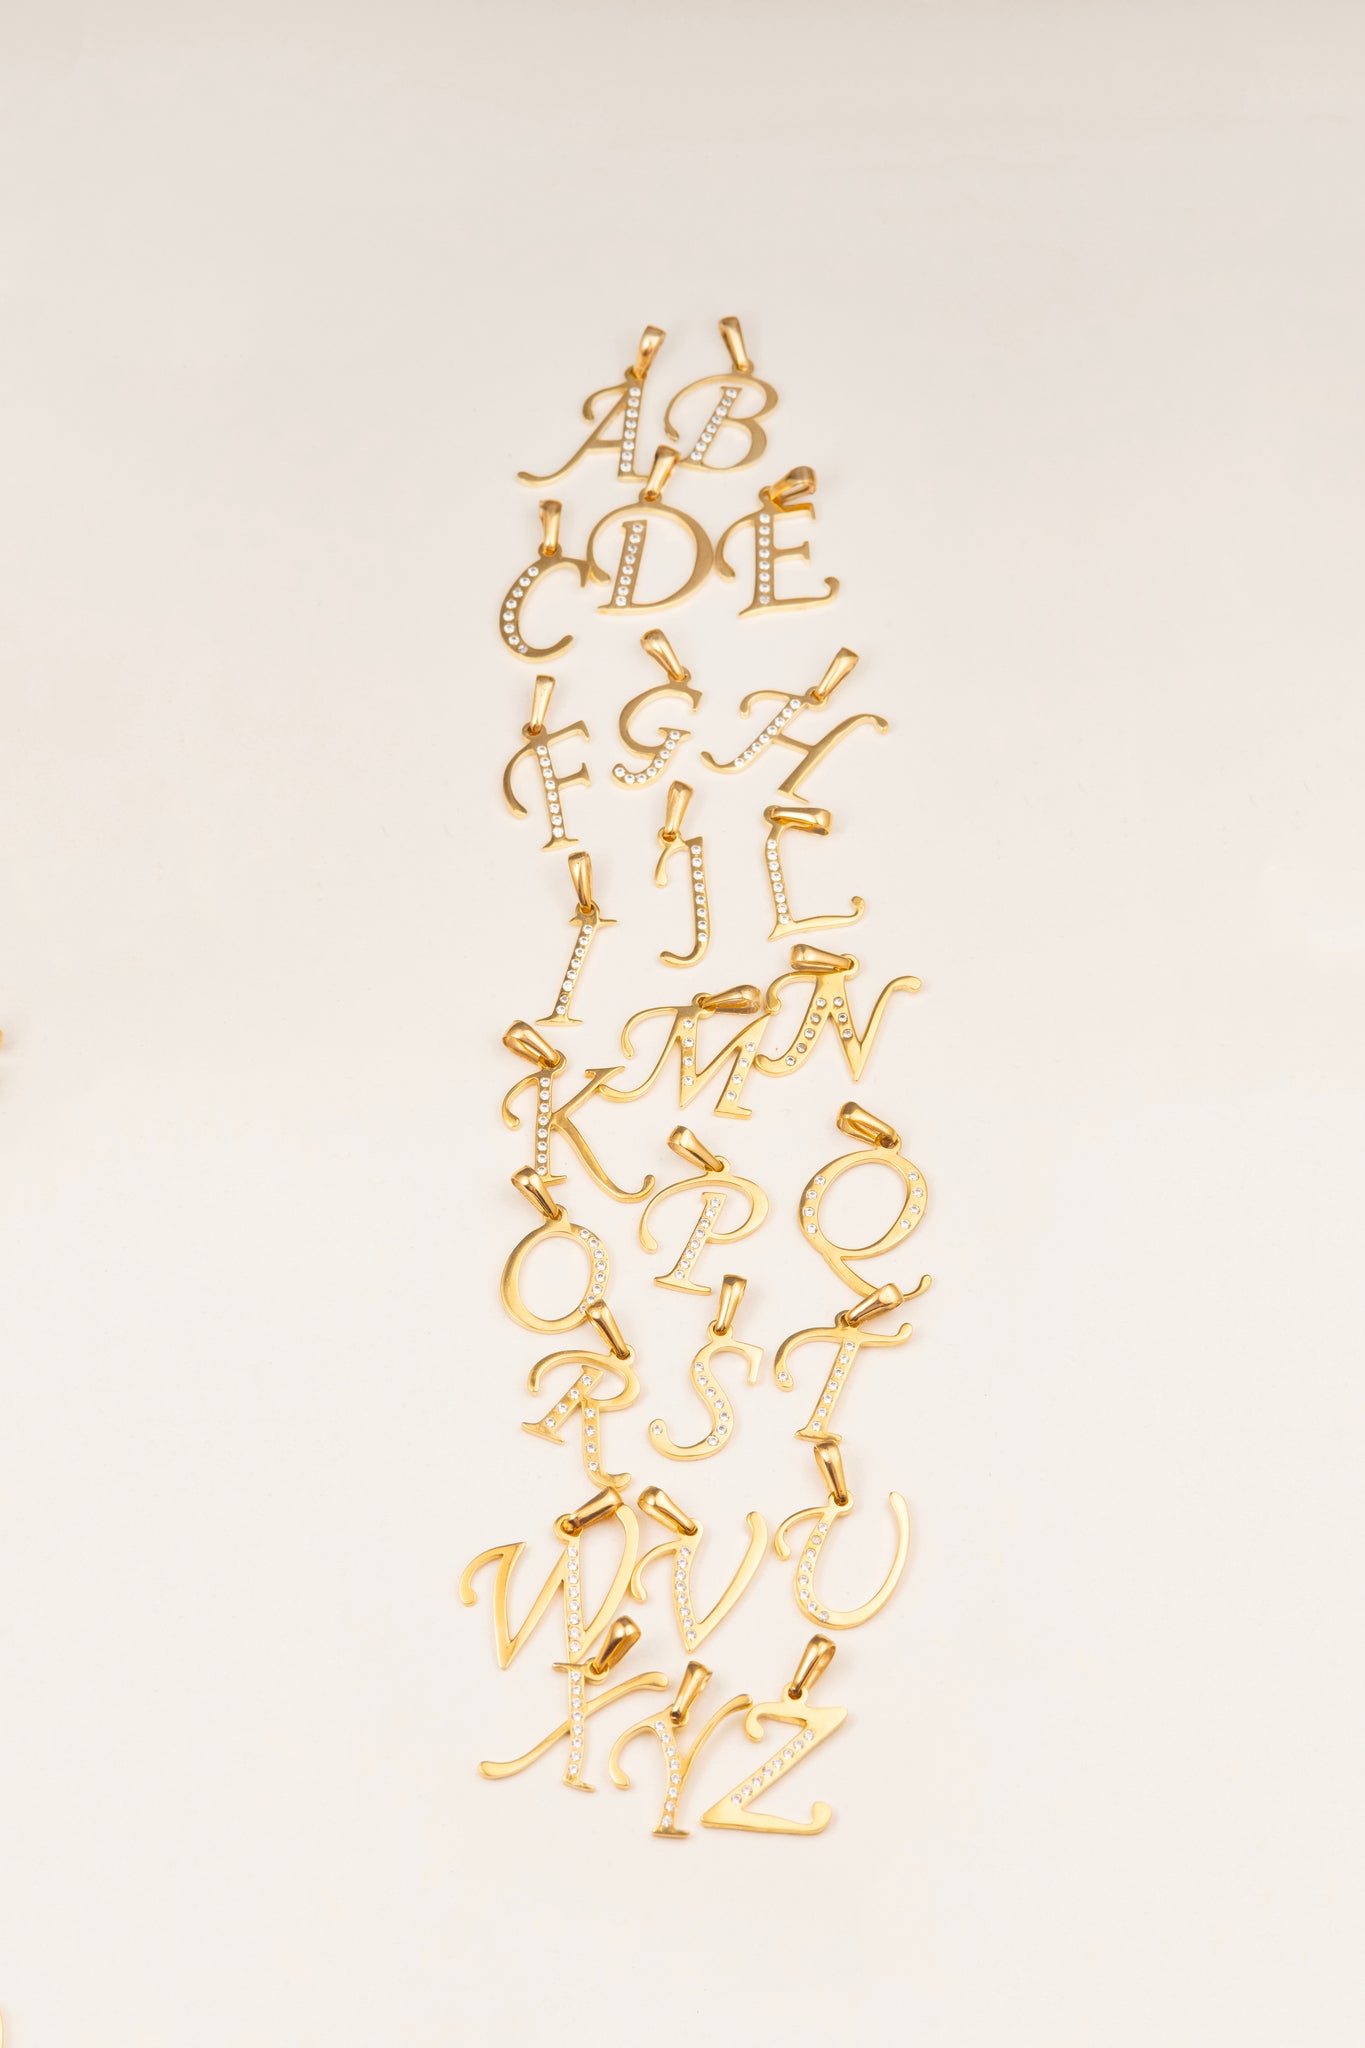 A B
C D E
F G H
I J L
K M N
O P Q
R S T
W V U
X Y Z